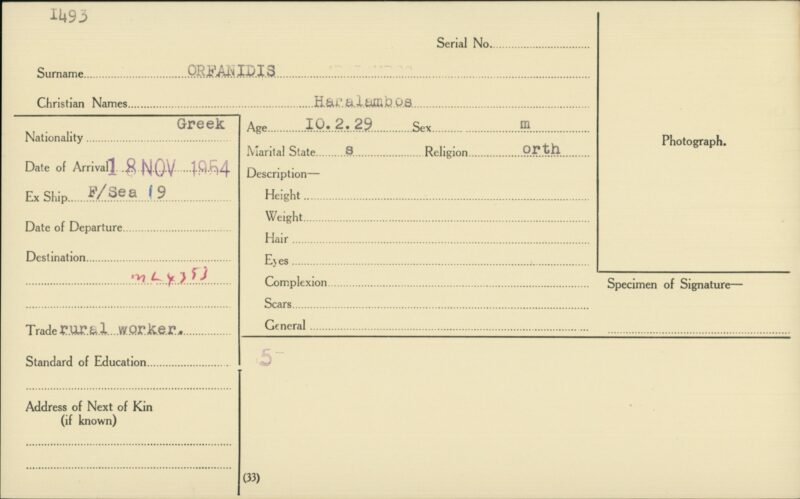 1493
Serial No.
Surname ORFANIDIS
Christian Names Haralambos
Nationality Greek
Date of Arrival 18 NOV 1954
Ex Ship F/Sea 19
Date of Departure
Destination
ML4353
Trade rural worker.
Standard of Education
Address of Next of Kin
(if known)
Age 10.2.29 Sex m
Marital State s Religion orth
Description—
Height
Weight
Hair
Eyes
Complexion
Scars
General
5
(33)
Photograph.
Specimen of Signature—